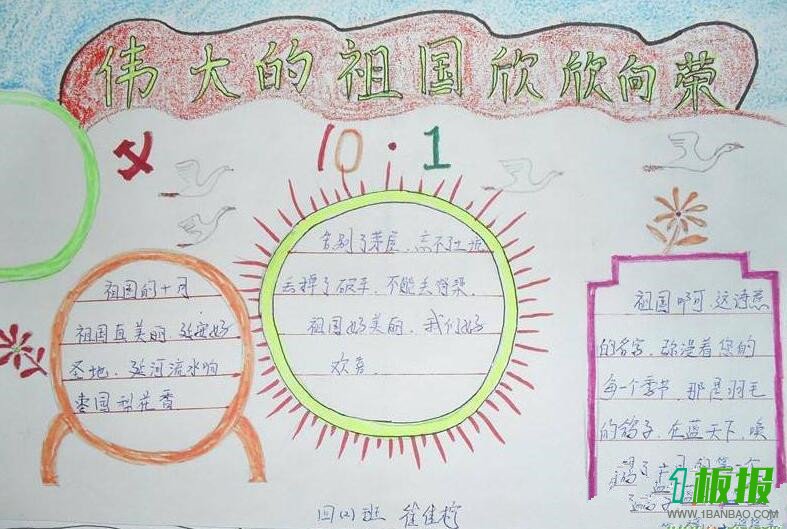 伟大的祖国欣欣向荣
10·1
祖国的十月
祖国真美丽，延安好
圣地，延河流水响
枣园梨花香
告别了茅屋，忘不了土炕
丢掉了破车，不能丢脊梁
祖国好美丽，我们好
欢喜
祖国啊，这诗意
的名字，弥漫着您的
每一个季节，那是羽毛
的鸽子，在蓝天下，唤
十月的第一个
四(2)班 崔佳
1板报
WWW.1BANBAO.COM